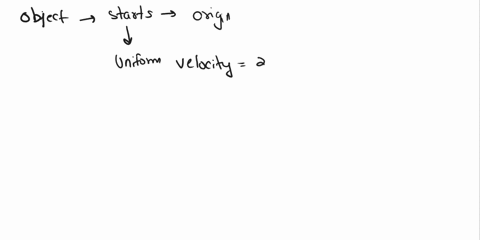 object → starts → orign
↓
Uniform velocity = 2